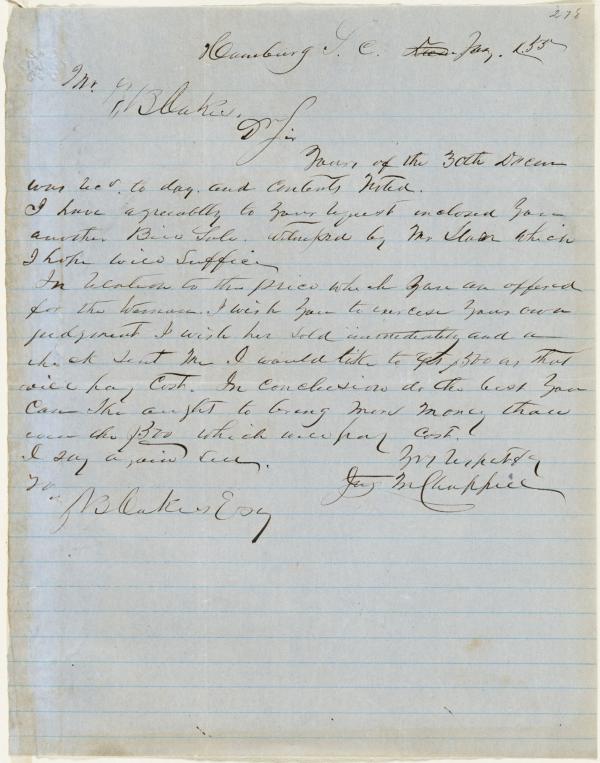 278
Hamburg S. C. Jany. 1, 55
Mr. Z B Oakes,
Dr Sir
Yours of the 30th Decem
was recd. to day. and contents Noted.
I have agreeably to Your request inclosed You
another Bill Sale. witnessed by Mr which
I hope will Suffice
In relation to the price which You are offered
for the Woman. I wish You to exercise Your own
judgment I wish her sold immediately and a
check sent Me I would like to get $500 as that
will pay Cost. In conclusion do the best You
can She aught to bring More Money than
even the $500 which will pay Cost.
I say again sell.
Yrs respectfly
Jas McChappill
To
Z B Oakes Esq